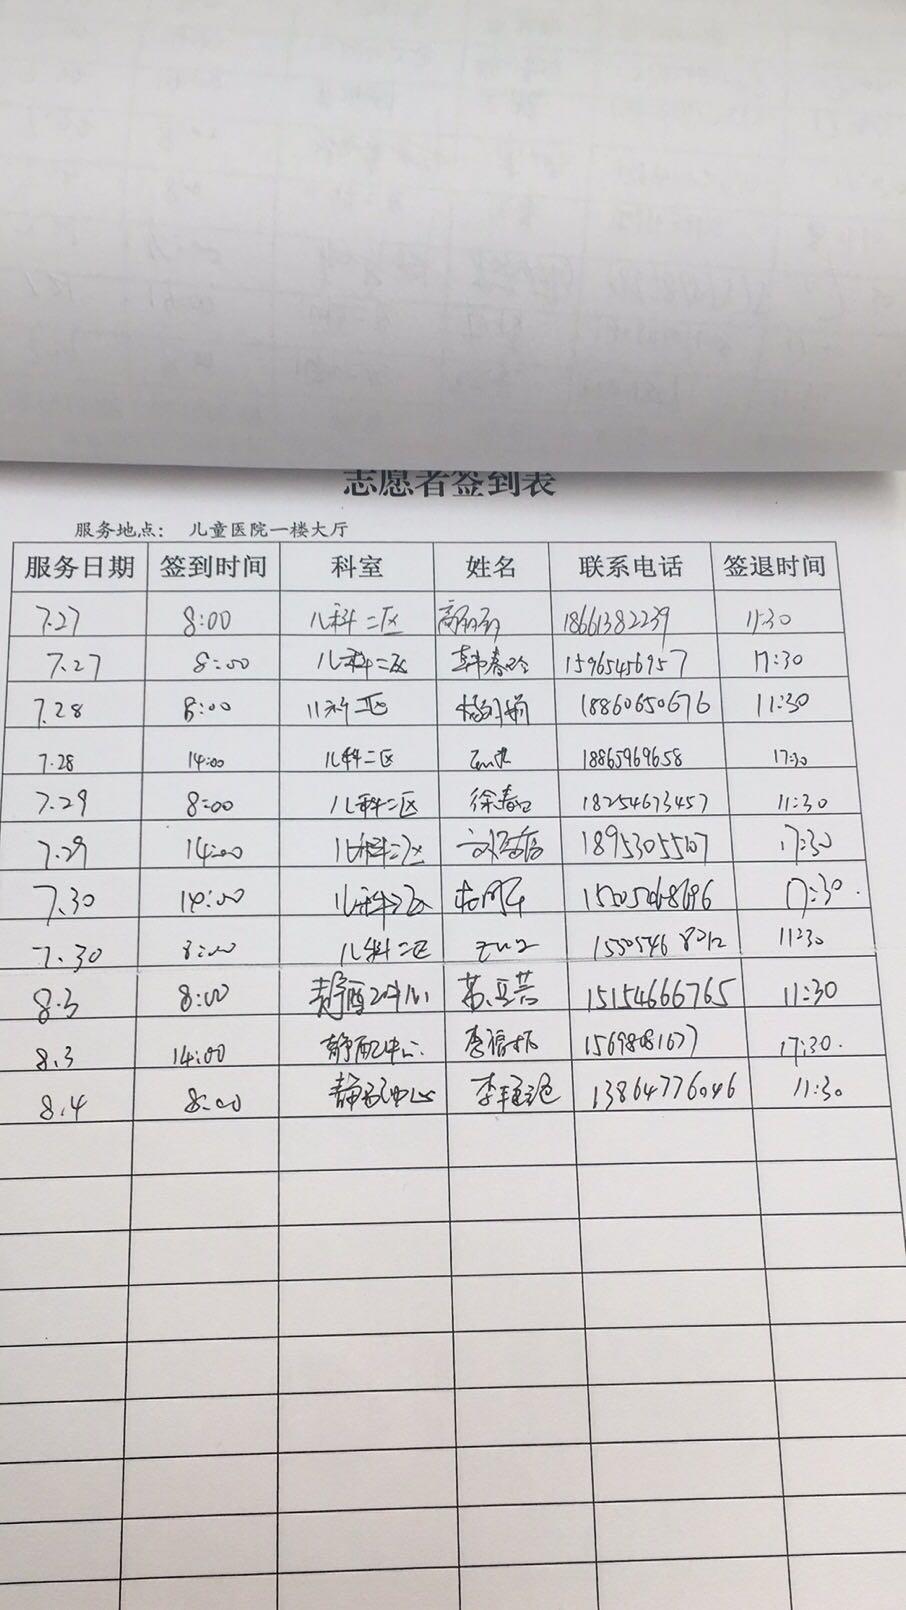 志愿者签到表
服务地点： 儿童医院一楼大厅
服务日期 签到时间 科室 姓名 联系电话 签退时间
7.27 8:00 儿科二区 18661382239 11:30
7.27 8:00 儿科二区 韩春玲 15965456957 17:30
7.28 8:00 儿科二区 18860650676 11:30
7.28 14:00 儿科二区 18865969658 17:30
7.29 8:00 儿科二区 18254673457 11:30
7.29 14:00 儿科二区 18953055107 17:30
7.30 14:00 儿科二区 17:30.
7.30 8:00 儿科二区 11:30
8.3 8:00 静配中心 15154666765 11:30
8.3 14:00 静配中心. 17:30.
8.4 8:00 静配中心 13864776046 11:30